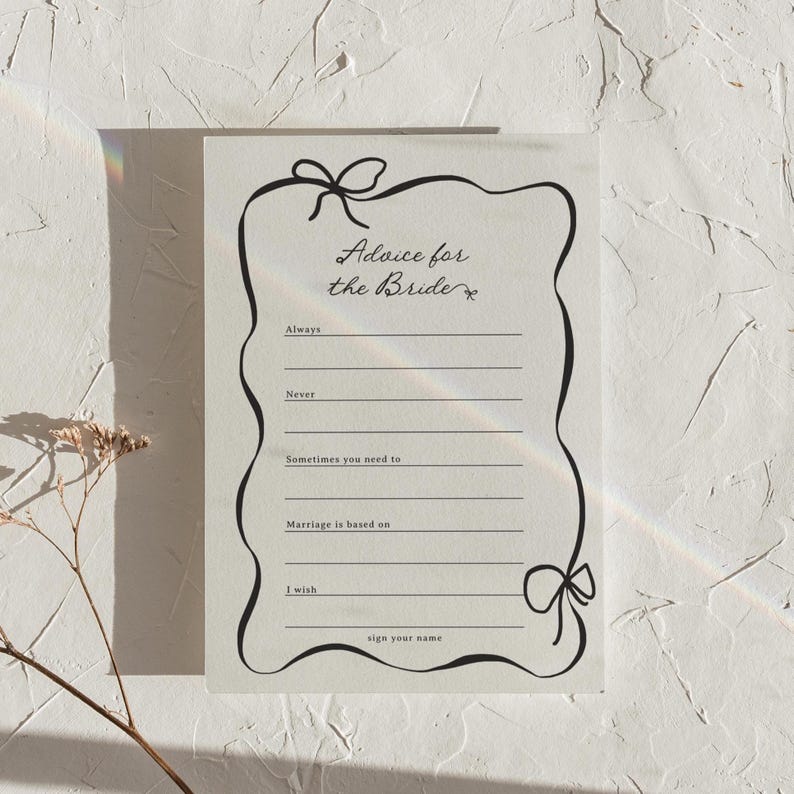 Advice for
the Bride
Always
Never
Sometimes you need to
Marriage is based on
I wish
sign your name